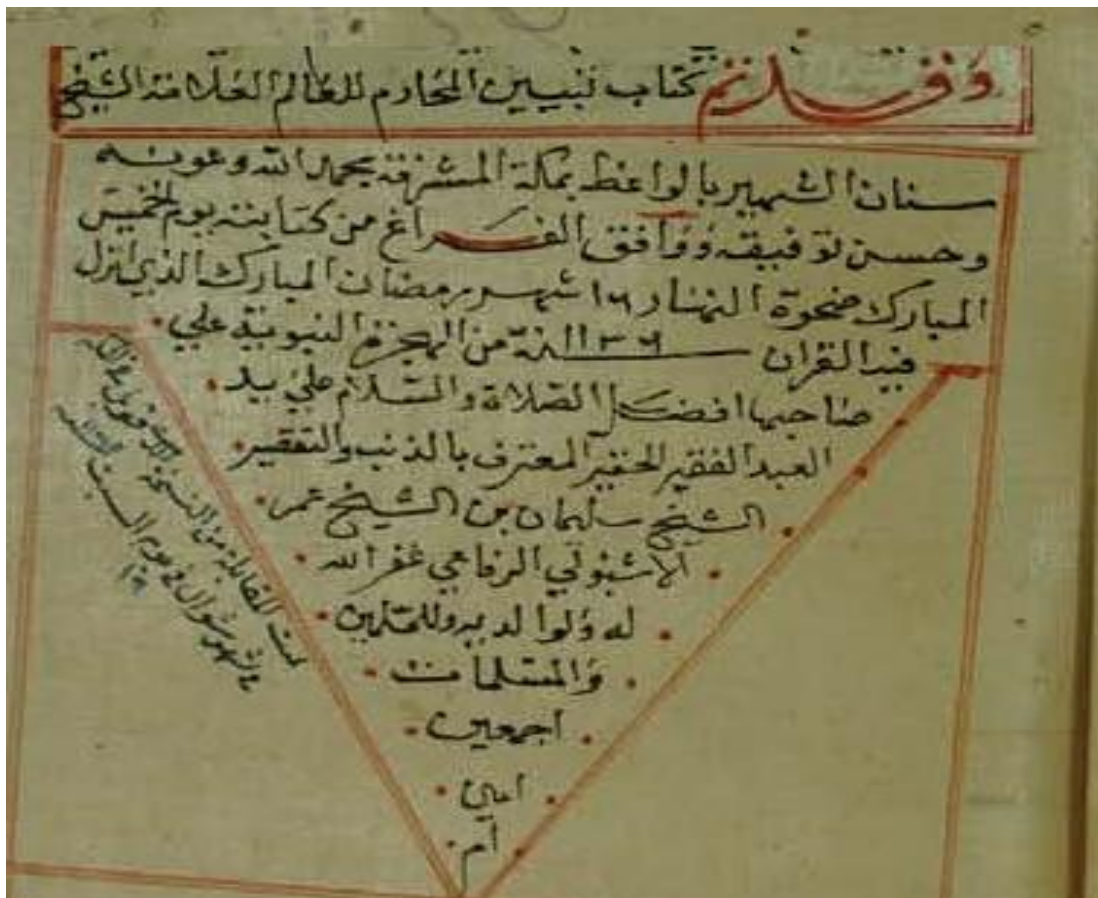 وقد تم كتاب تبيين المحارم للعالم العلامة الشيخ
سنان الشهير بالواعظ بمكة المشرفة بحمد الله وعونه
وحسن توفيقه ووافق الفراغ من كتابته يوم الخميس
المبارك ضحوة النهار ١٦ شهر رمضان المبارك الذي انزل
فيه القران من الهجرة النبوية علي
صاحبها افضل الصلاة والسلام علي يد
العبد الفقير الحقير المعترف بالذنب والتقصير
الشيخ سليمان بن الشيخ عمر
الاشبولي الرفاعي غفر الله
له ولوالديه وللمسلمين
والمسلمات
اجمعين
امين
ام
تمت المقابلة من النسخة
شهر شوال في يوم السبت